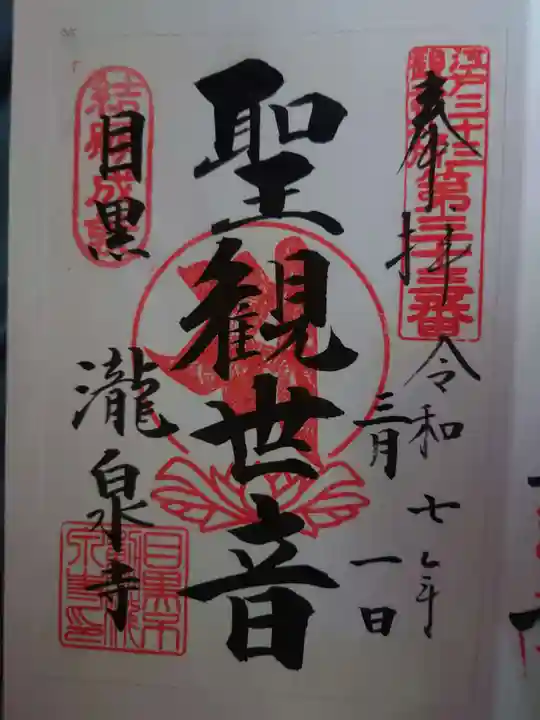 奉拝
江戸三十三
観音札所
第三十三番
令和七年
三月一日
聖観世音
結願成就
目黒
瀧泉寺